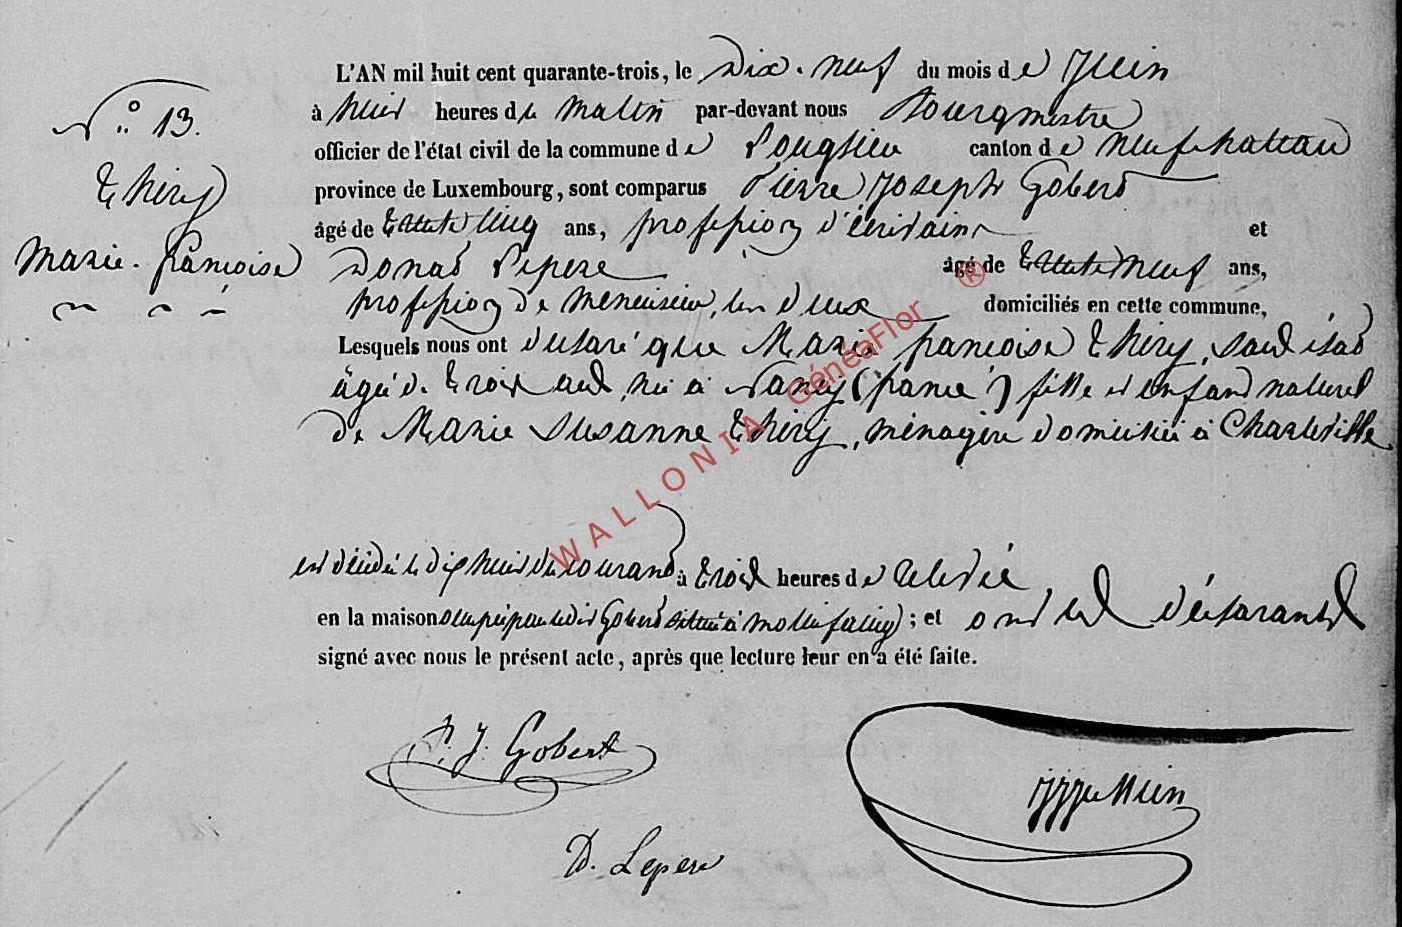 L'AN mil huit cent quarante-trois, le Dix-neuf du mois de Juin
N° 13. à huit heures du matin par-devant nous Bourgmestre
officier de l'état civil de la commune de canton de neufchateau
Thiry province de Luxembourg, sont comparus Pierre Joseph Gobert
âgé de trente cinq ans, profession d'écrivain et
Marie françoise Donat Lepere âgé de trente neuf ans,
profession de menuisier, les deux domiciliés en cette commune,
Lesquels nous ont déclaré que Marie françoise Thiry,
âgée de trois ans, née à Nancy (france) fille et enfant naturel
de Marie Susanne Thiry, ménagère domiciliée à Charleville
est décédée le dix huit du courant à trois heures de relevée
en la maison occupée par le dit Gobert située à ; et ont les déclarants
signé avec nous le présent acte, après que lecture leur en a été faite.
P. J. Gobert
D. Lepere
WALLONIA GénéaFlor ®